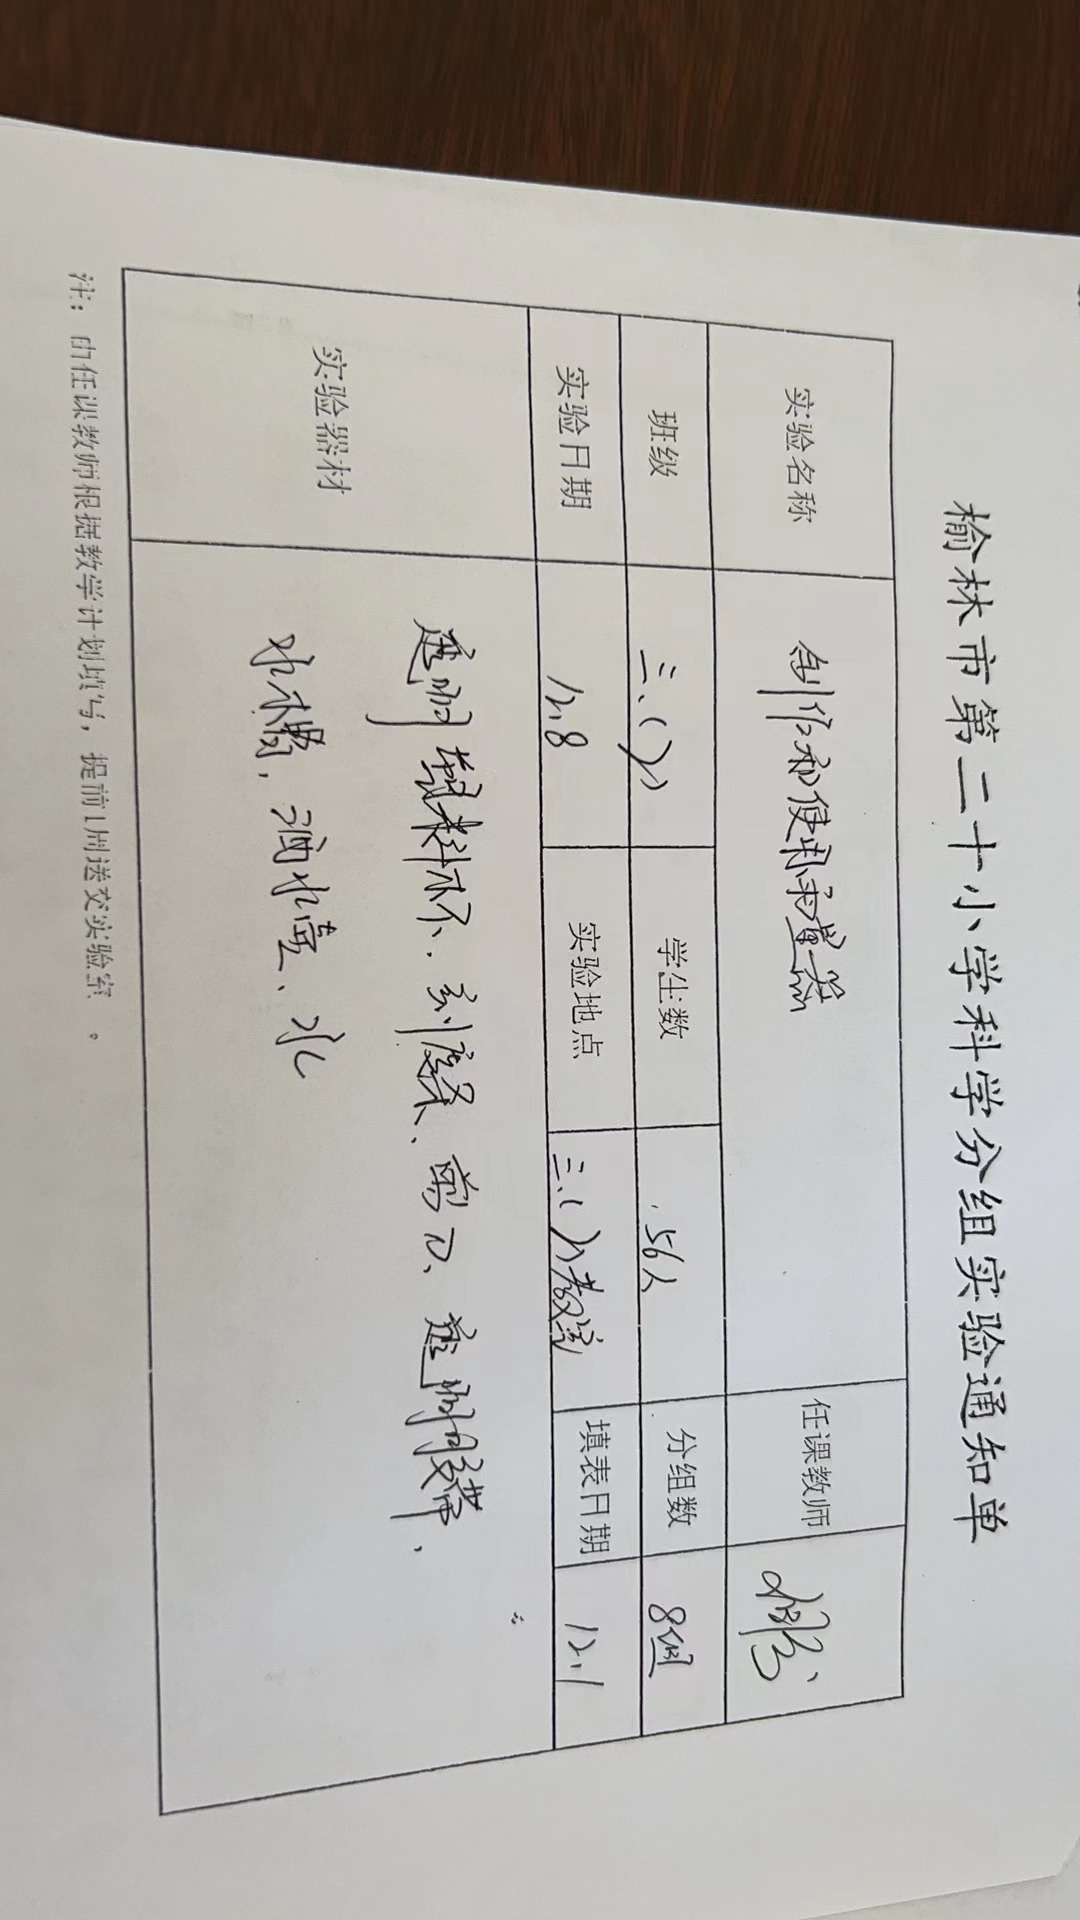 榆林市第二十小学科学分组实验通知单
实验名称 制作和使用雨量器 任课教师
班级 三、(2) 学生数 56人 分组数 8组
实验日期 12.8 实验地点 三、(2)教室 填表日期 12.1
实验器材 透明塑料杯、刻度条、剪刀、透明胶带、
水槽、洒水壶、水
注：由任课教师根据教学计划填写，提前1周送交实验室。